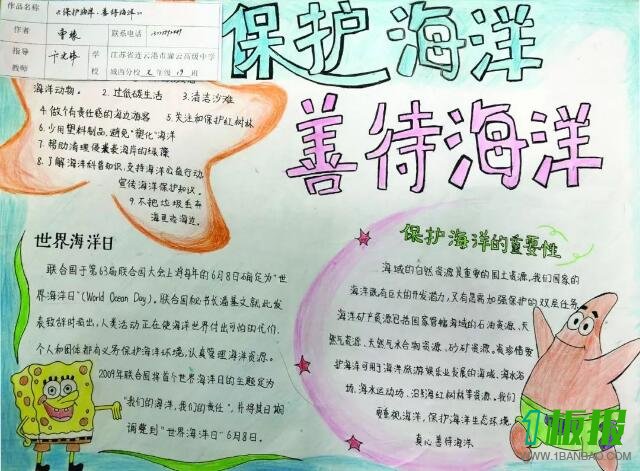 作品名称
《保护海洋·善待海洋》
作者
联系电话
指导教师
学校
江苏省连云港市灌云高级中学
城西分校七年级19班
保护海洋
善待海洋
海洋动物。 2. 过低碳生活 3. 清洁沙滩
4. 做个有责任感的海边游客 5. 关注和保护红树林
6. 少用塑料制品，避免"塑化"海洋
7. 帮助清理侵袭海岸的绿藻
8. 了解海洋科普知识，支持海洋公益行动，
宣传海洋保护知识。
9. 不把垃圾丢弃
海里或海边。
世界海洋日
联合国于第63届联合国大会上将每年的6月8日确定为"世
界海洋日"(World Ocean Day)。联合国秘书长潘基文就此发
表致辞时指出，人类活动正在使海洋世界付出可怕的代价，
个人和团体都有义务保护海洋环境，认真管理海洋资源。
2009年联合国将首个世界海洋日的主题定为
"我们的海洋，我们的责任"，并将其日期
调整到"世界海洋日"6月8日。
保护海洋的重要性
海域的自然资源是重要的国土资源，我们国家的
海洋既有巨大的开发潜力，又有是需加强保护的双层任务
海洋矿产资源包括国家管辖海域的石油资源、天
然气资源、天然气水合物资源、砂矿资源。我珍惜
护海洋可用于海洋旅游娱乐业发展的海域、海水浴
场、海水运动场、沿海红树林等资源。我们
要重视海洋，保护海洋生态环境，
真心善待海洋.
1板报
WWW.1BANBAO.COM